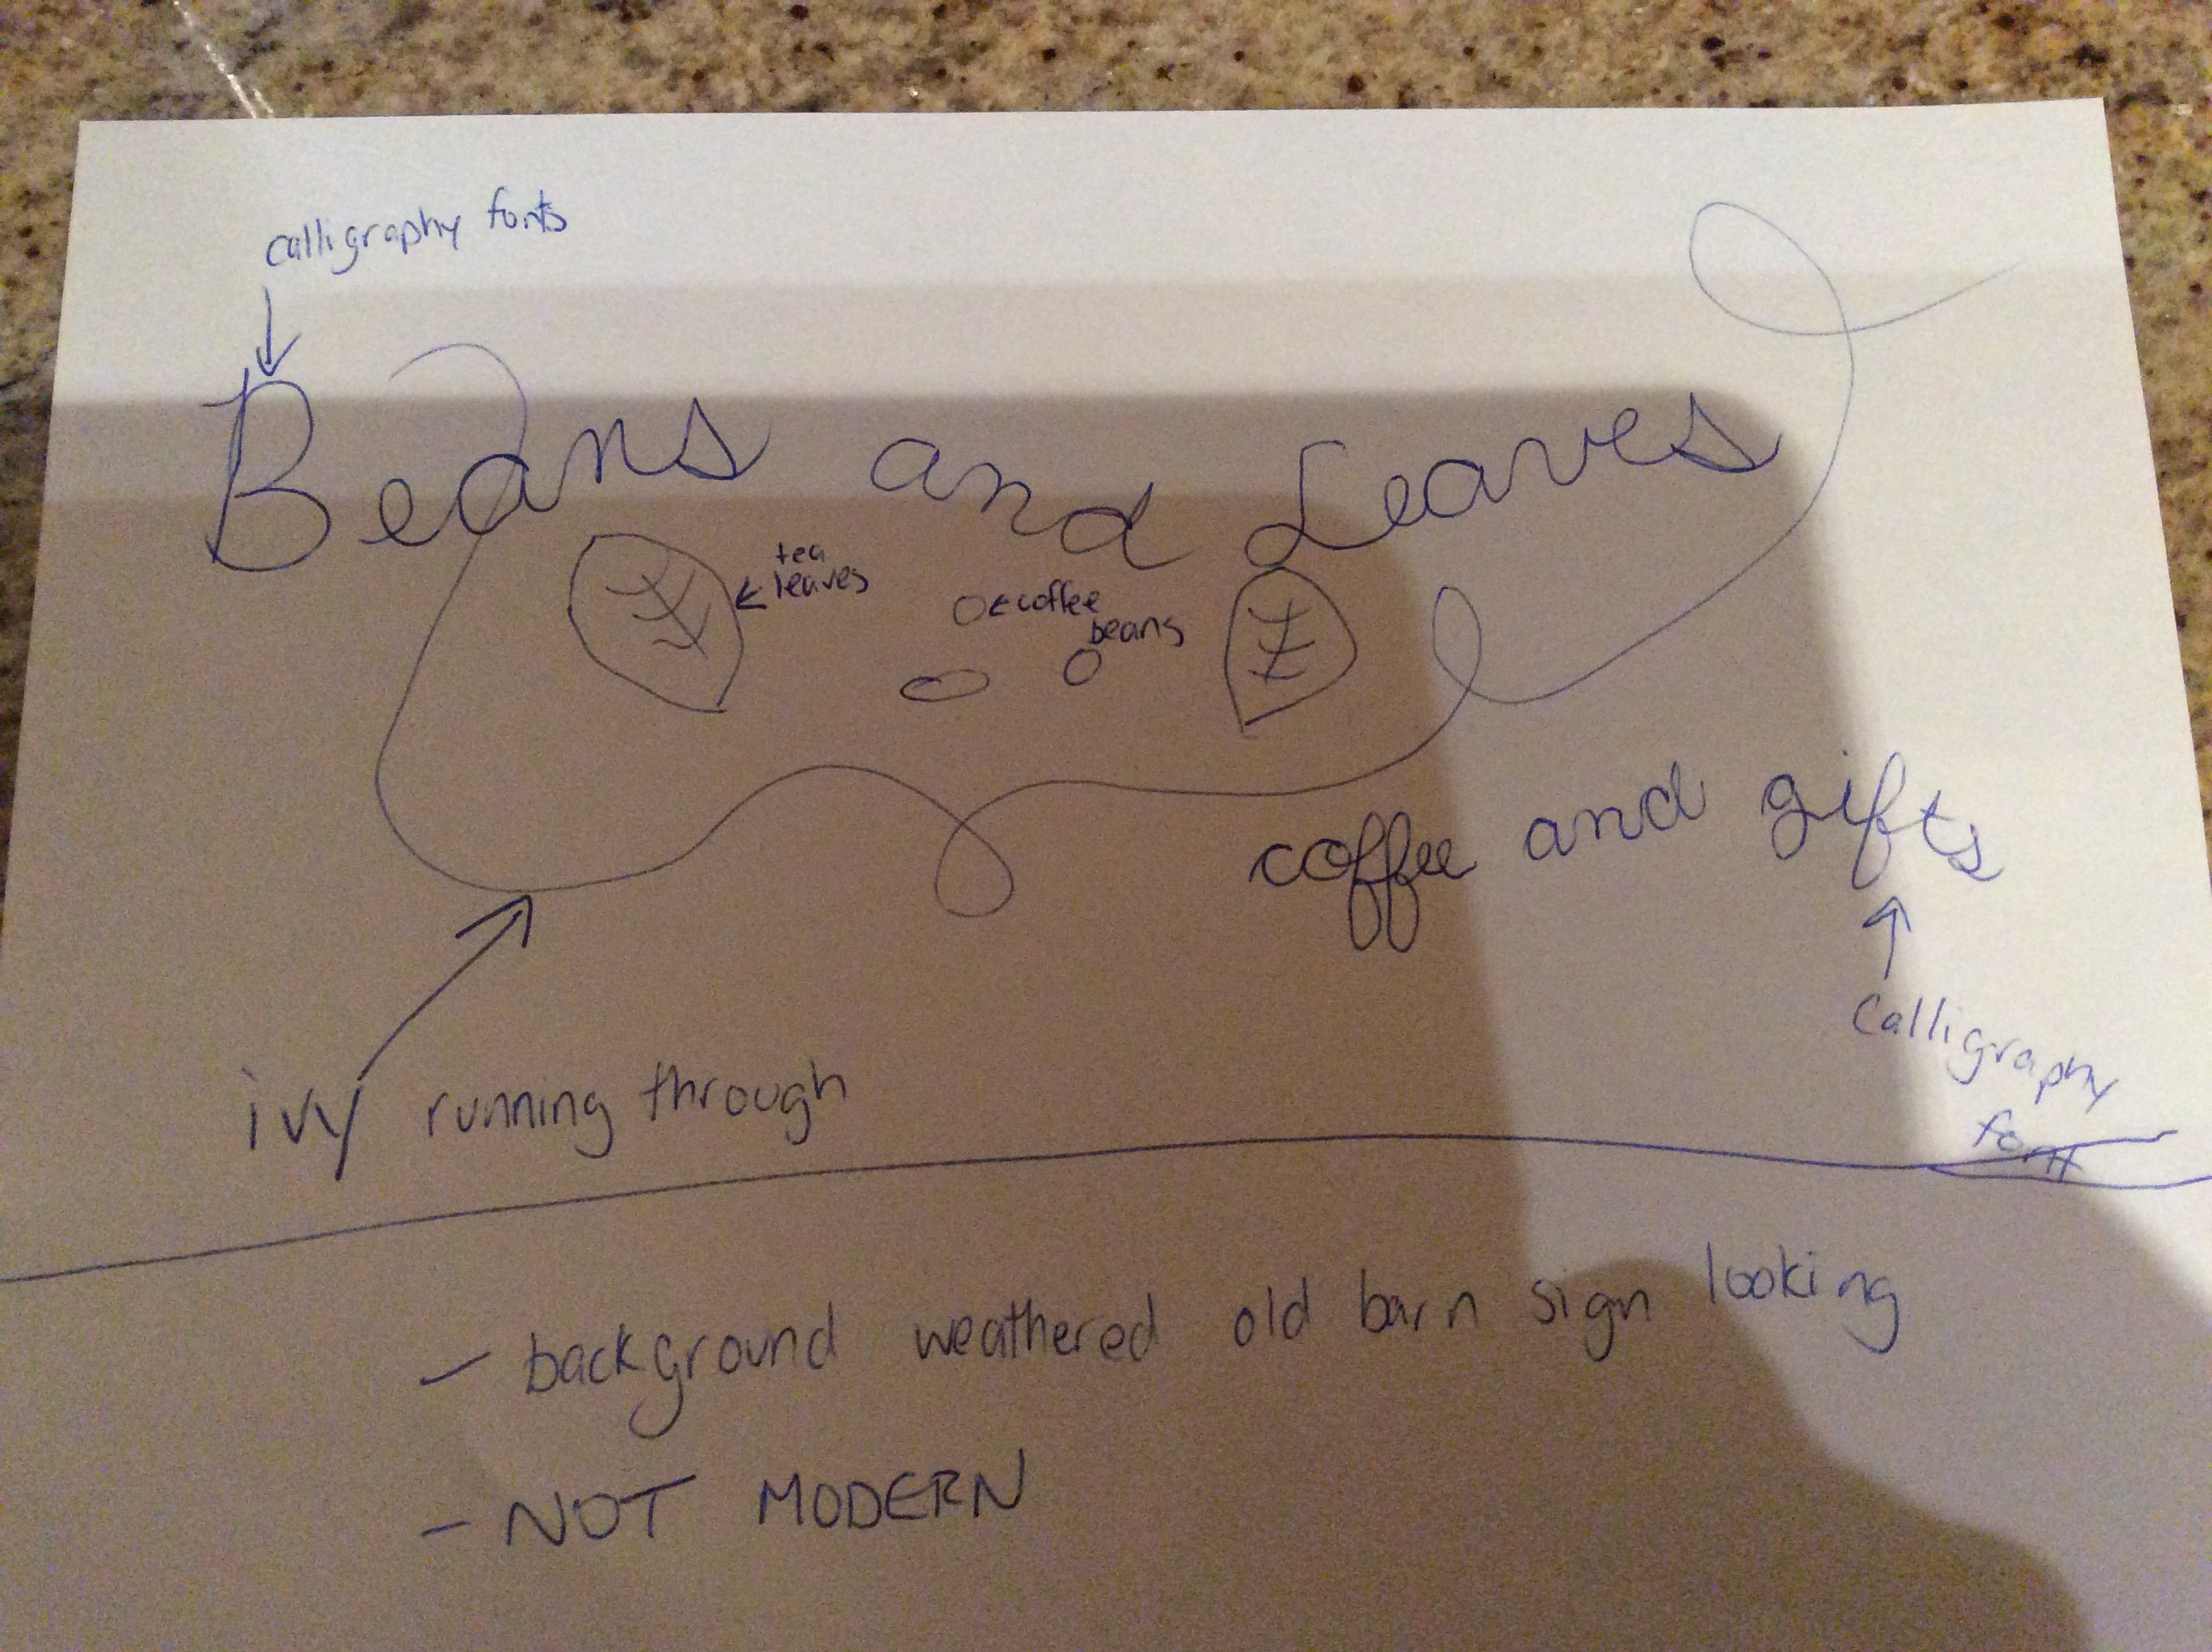 calligraphy fonts
Beans and Leaves
tea
leaves
coffee
beans
coffee and gifts
Calligraphy
font
ivy running through
- background weathered old barn sign looking
- NOT MODERN